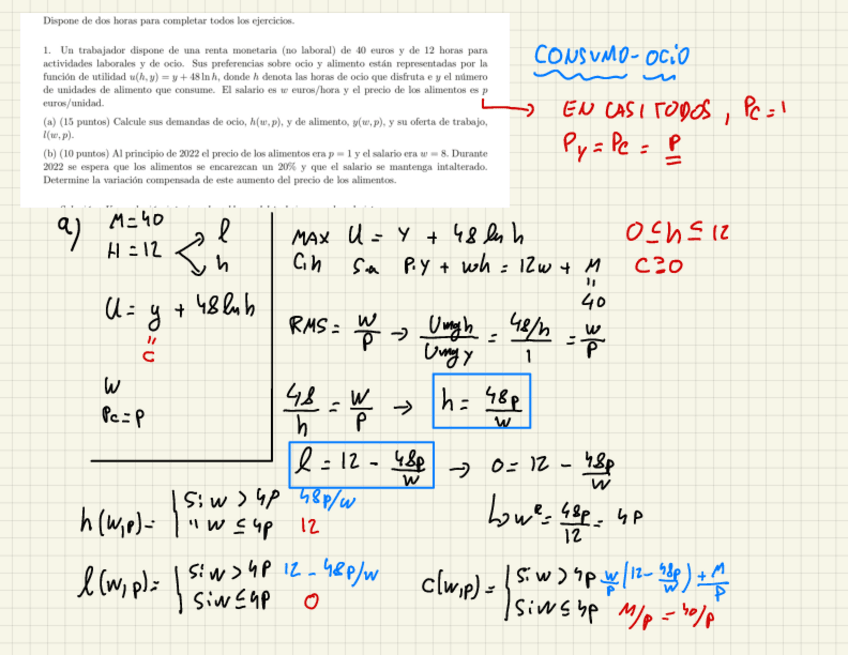 Dispone de dos horas para completar todos los ejercicios.
1. Un trabajador dispone de una renta monetaria (no laboral) de 40 euros y de 12 horas para
actividades laborales y de ocio. Sus preferencias sobre ocio y alimento están representadas por la
función de utilidad u(h, y) = y + 48 ln h, donde h denota las horas de ocio que disfruta e y el número
de unidades de alimento que consume. El salario es w euros/hora y el precio de los alimentos es p
euros/unidad.
(a) (15 puntos) Calcule sus demandas de ocio, h(w, p), y de alimento, y(w, p), y su oferta de trabajo,
l(w, p).
(b) (10 puntos) Al principio de 2022 el precio de los alimentos era p = 1 y el salario era w = 8. Durante
2022 se espera que los alimentos se encarezcan un 20% y que el salario se mantenga intalterado.
Determine la variación compensada de este aumento del precio de los alimentos.
CONSUMO-OCIO
EN CASI TODOS, Pc=1
Py = Pc = P
a) M=40
H=12
l
h
U = y + 48 ln h
"
c
W
Pc=P
MAX U = Y + 48 ln h
C,h S.a P.Y + wh = 12w + M
"
40
0≤h≤12
C≥0
RMS = W/P → Umgh/Umgy = 48/h / 1 = W/P
48/h = W/P → h = 48P/W
l = 12 - 48P/W → 0 = 12 - 48P/W
↳ wᴿ = 48P/12 = 4P
h(w,p) = Si w > 4P 48P/w
" w ≤ 4P 12
l(w,p) = Si w > 4P 12 - 48P/w
Si w ≤ 4P 0
C(w,p) = Si w > 4P w/P (12 - 48P/w) + M/P
Si w ≤ 4P M/P = 40/P